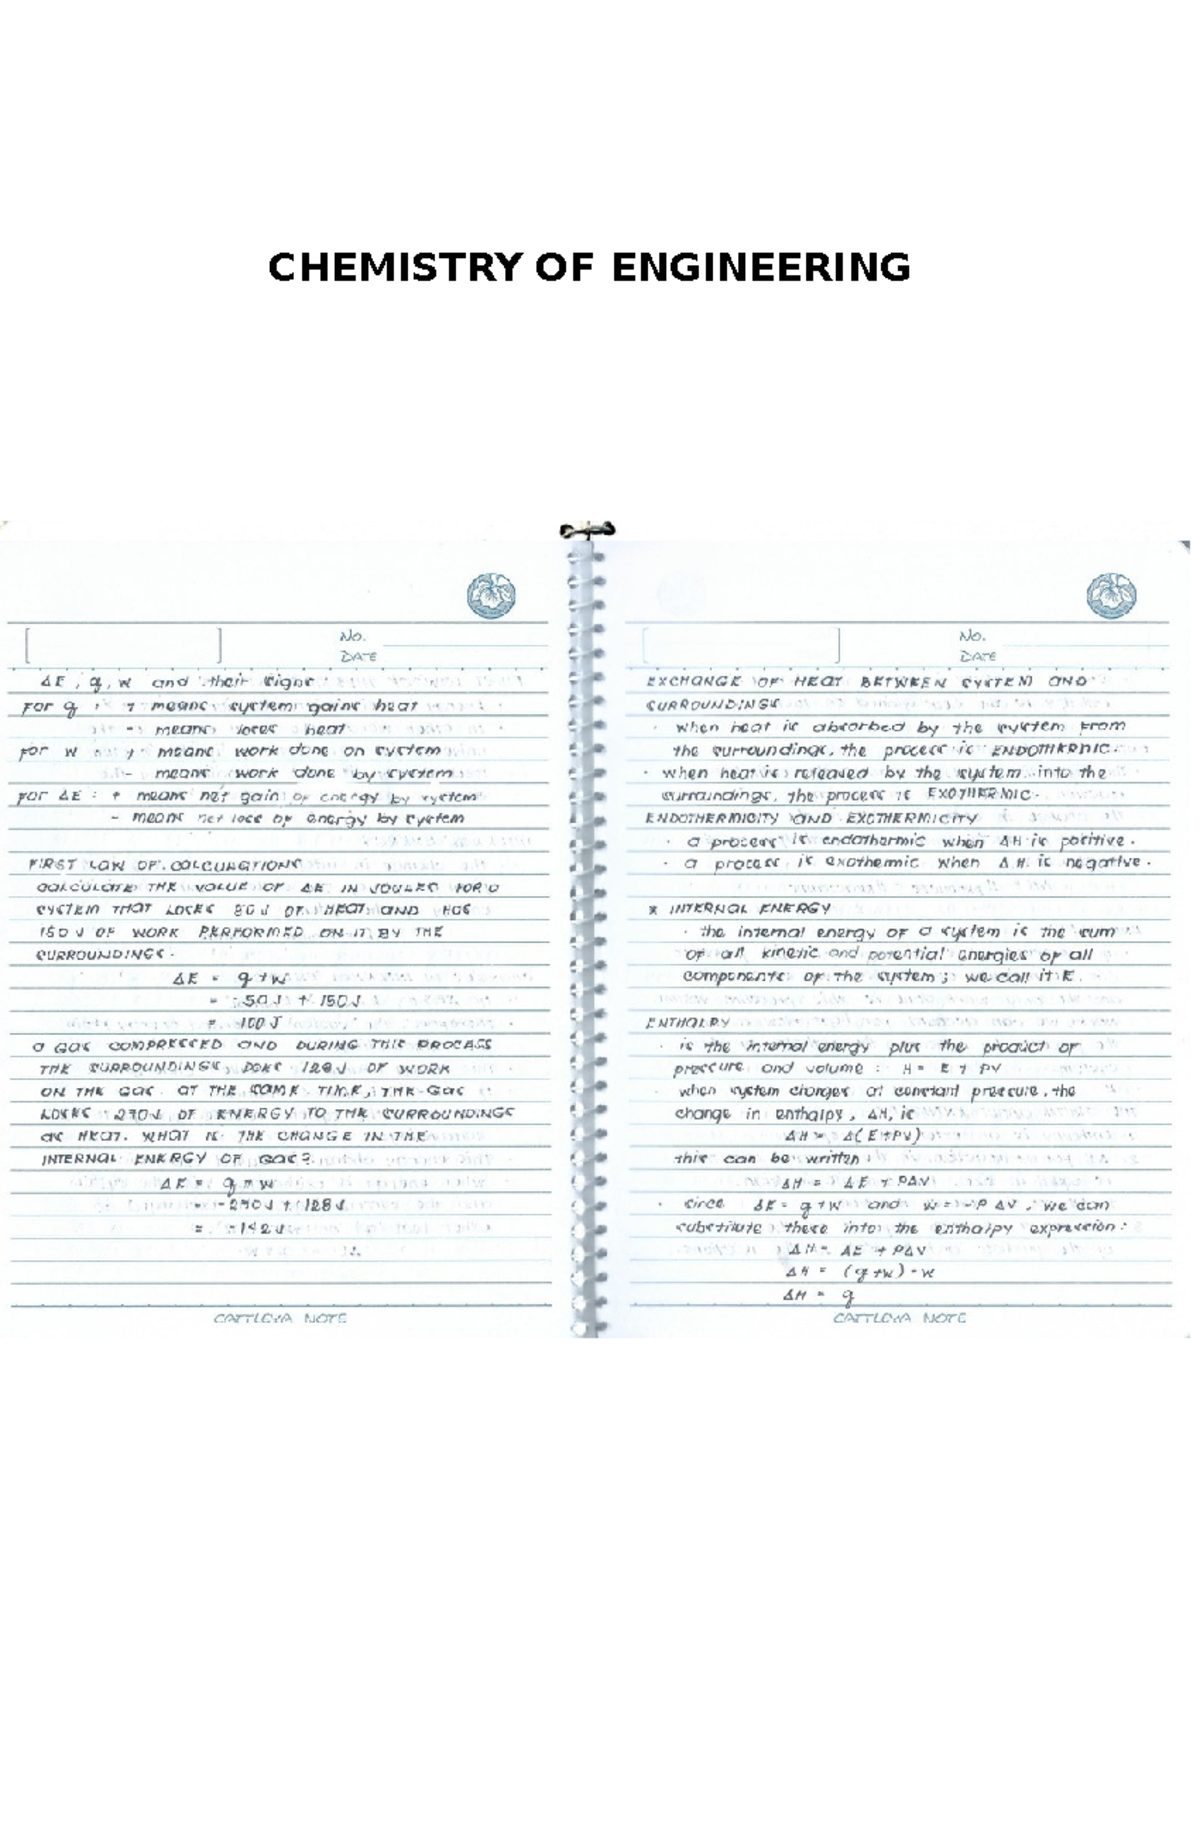 CHEMISTRY OF ENGINEERING
No.
DATE
ΔE, q, w and their signs
For q : + means system gains heat
- means loses heat
For w + means work done on system
- means work done by system
For ΔE : + means net gain of energy by system
- means net loss of energy by system
FIRST LAW OF CALCULATIONS
CALCULATE THE VALUE OF ΔE IN JOULES FOR A
SYSTEM THAT LOSES 50 J OF HEAT AND HAS
150 J OF WORK PERFORMED ON IT BY THE
SURROUNDINGS.
ΔE = q + w
= -50J + 150J
= 100 J
A GAS COMPRESSED AND DURING THIS PROCESS
THE SURROUNDINGS DOES 128J OF WORK
ON THE GAS. AT THE SAME TIME, THE GAS
LOSES 270J OF ENERGY TO THE SURROUNDINGS
AS HEAT. WHAT IS THE CHANGE IN THE
INTERNAL ENERGY OF GAS?
ΔE = q + w
-270J + 128J
= -142J
CATTLEYA NOTE
No.
DATE
EXCHANGE OF HEAT BETWEEN SYSTEM AND
SURROUNDINGS
· when heat is absorbed by the system from
the surroundings, the process is ENDOTHERMIC.
· when heat is released by the system into the
surroundings, the process is EXOTHERMIC.
ENDOTHERMICITY AND EXOTHERMICITY
· a process is endothermic when ΔH is positive.
· a process is exothermic when ΔH is negative.
* INTERNAL ENERGY
· the internal energy of a system is the sum
of all kinetic and potential energies of all
components of the system; we call it E.
ENTHALPY
· is the internal energy plus the product of
pressure and volume : H = E + PV
· when system changes at constant pressure, the
change in enthalpy, ΔH, is
ΔH = Δ(E+PV)
this can be written
ΔH = ΔE + PΔV
· since ΔE = q+w and w = -P ΔV, we can
substitute these into the enthalpy expression:
ΔH = ΔE + PΔV
ΔH = (q+w) - w
ΔH = q
CATTLEYA NOTE